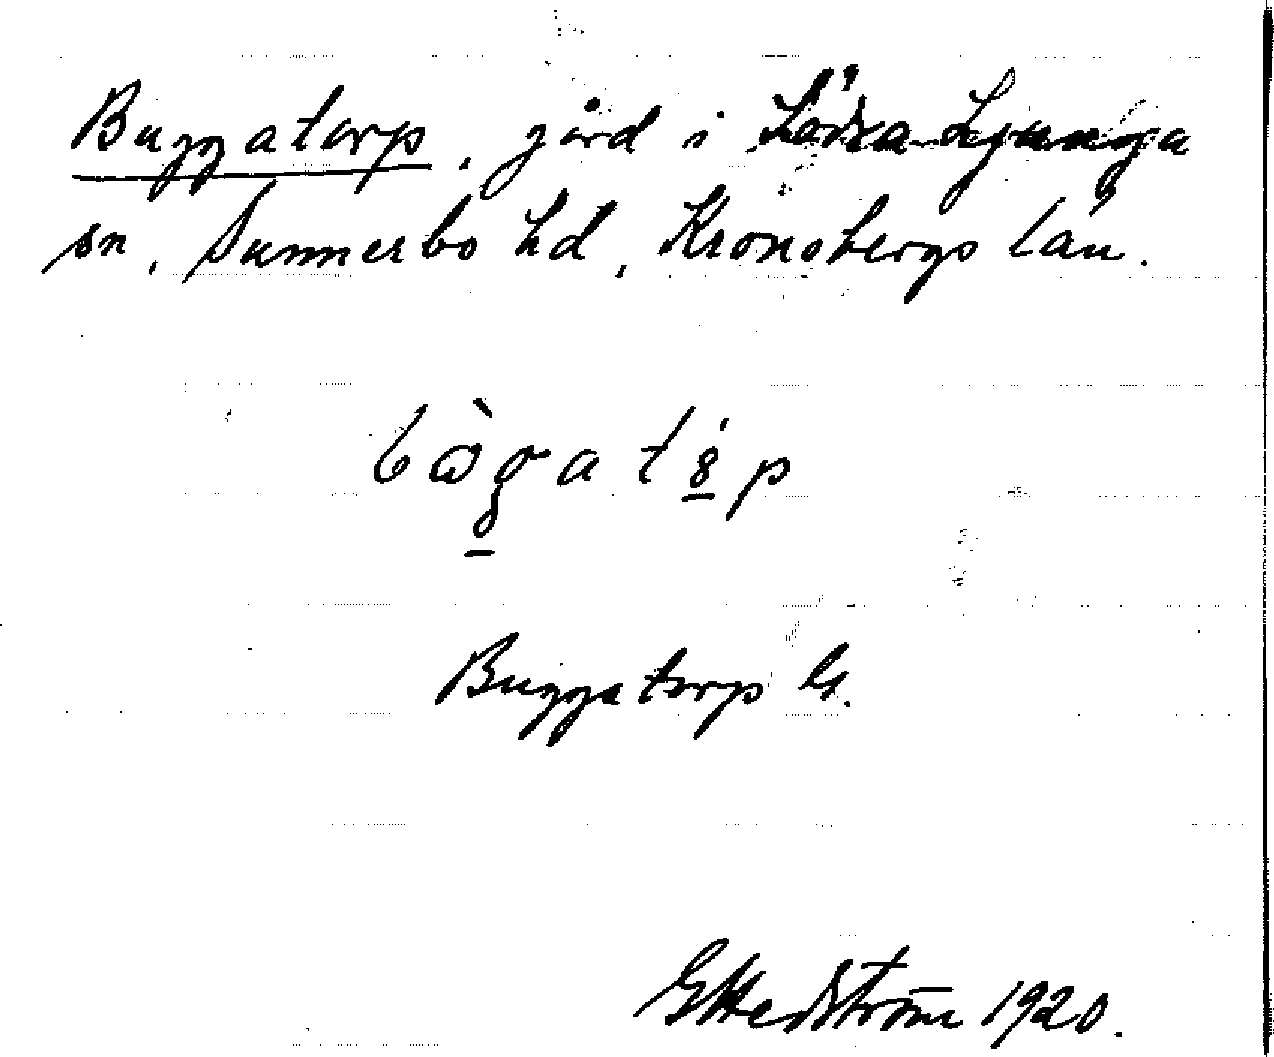 Buggatorp, gård i Södra Ljunga
sn, Sunnerbo hd, Kronobergs län.
Buggatorp G.
G Hedström 1920.